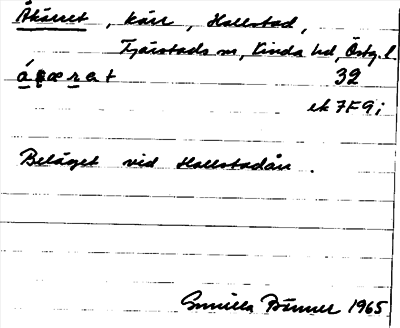 Åkärret, kärr, Hallstad,
Tjärstads sn, Kinda hd, Östg. l.
32
ek 7F9;
Beläget vid Hallstadån.
Gunilla 1965